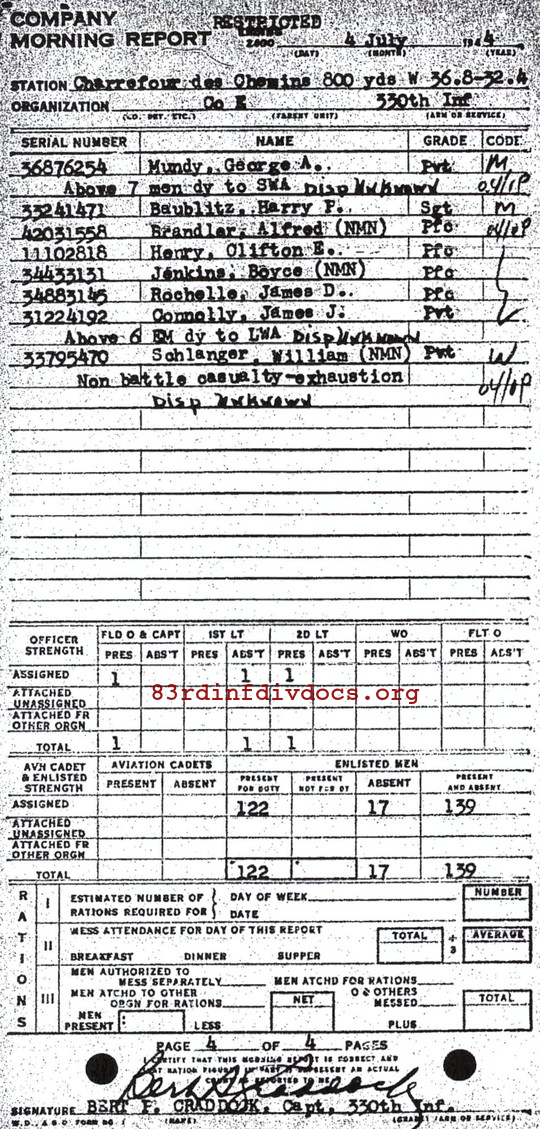 COMPANY
MORNING REPORT
RESTRICTED
2000 4 July 1944
(DAY) (MONTH) (YEAR)
STATION Charrefour des Chemins 800 yds W 36.8-32.4
ORGANIZATION Co E 330th Inf
(CO. DET. ETC.) (PARENT UNIT) (ARM OR SERVICE)
SERIAL NUMBER NAME GRADE CODE
36876254 Mundy, George A. Pvt M
Above 7 men dy to SWA Disp Unknown 04/10P
33241471 Baublitz, Harry P. Sgt M
42031558 Brandler, Alfred (NMN) Pfc 04/10P
11102818 Henry, Clifton E. Pfc
34433131 Jenkins, Boyce (NMN) Pfc
34883145 Rochelle, James D. Pfc
31224192 Connolly, James J. Pvt
Above 6 EM dy to LWA Disp Unknown
33795470 Schlanger, William (NMN) Pvt
Non battle casualty-exhaustion 04/10P
Disp Unknown
OFFICER STRENGTH FLD O & CAPT 1ST LT 2D LT WO FLT O
PRES ABS'T PRES ABS'T PRES ABS'T PRES ABS'T PRES ABS'T
ASSIGNED 1 1 1
ATTACHED UNASSIGNED
ATTACHED FR OTHER ORGN
TOTAL 1 1 1
83rdinfdivdocs.org
AVN CADET & ENLISTED STRENGTH AVIATION CADETS ENLISTED MEN
PRESENT ABSENT PRESENT FOR DUTY PRESENT NOT FOR DY ABSENT PRESENT AND ABSENT
ASSIGNED 122 17 139
ATTACHED UNASSIGNED
ATTACHED FR OTHER ORGN
TOTAL 122 17 139
RATIONS
I ESTIMATED NUMBER OF RATIONS REQUIRED FOR DAY OF WEEK DATE NUMBER
II MESS ATTENDANCE FOR DAY OF THIS REPORT TOTAL ÷ 3 AVERAGE
BREAKFAST DINNER SUPPER
III MEN AUTHORIZED TO MESS SEPARATELY MEN ATCHD FOR RATIONS
MEN ATCHD TO OTHER ORGN FOR RATIONS NET O & OTHERS MESSED TOTAL
MEN PRESENT LESS PLUS
PAGE 4 OF 4 PAGES
I CERTIFY THAT THIS MORNING REPORT IS CORRECT AND
Bert F Craddock
SIGNATURE BERT F. CRADDOCK, Capt, 330th Inf.
W.D., A.G.O. FORM NO. 1 (NAME) (GRADE) (ARM OR SERVICE)